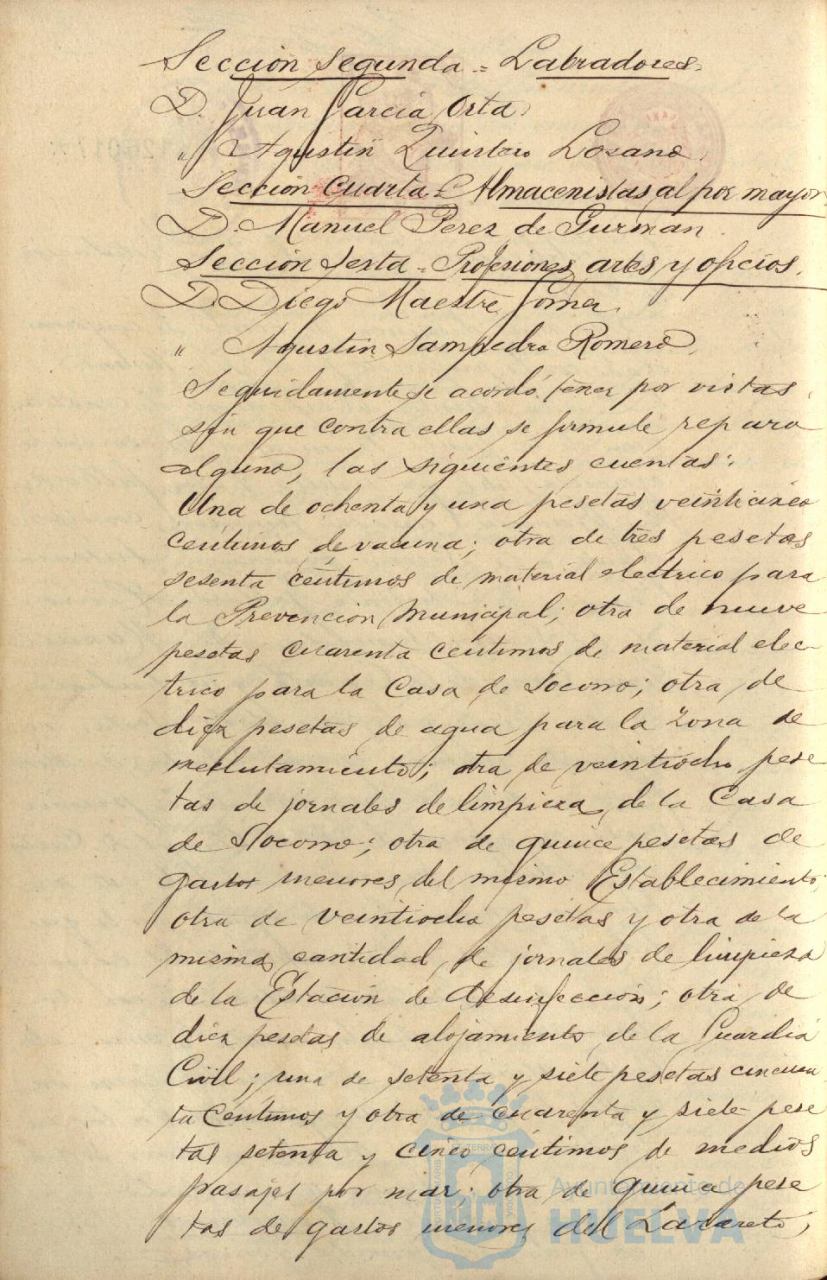 Sección Segunda = Labradores.
D. Juan García Orta.
" Agustín Quintero Lozano.
Sección Cuarta = Almacenistas al por mayor
D. Manuel Perez de Guzman.
Sección Sexta = Profesiones, artes y oficios.
D. Diego Maestre Gomez.
" Agustín Sampedro Romero.
Seguidamente se acordó tener por vistas
sin que contra ellas se formule reparo
alguno, las siguientes cuentas:
Una de ochenta y una pesetas veinticinco
centimos de vacuna; otra de tres pesetas
sesenta céntimos de material electrico para
la Prevención Municipal; otra de nueve
pesetas cuarenta centimos de material elec-
trico para la Casa de Socorro; otra de
diez pesetas de agua para la Zona de
reclutamiento; otra de veintiocho pese
tas de jornales de limpieza de la Casa
de Socorro; otra de quince pesetas de
gastos menores del mismo Establecimiento;
otra de veintiocho pesetas y otra de la
misma cantidad, de jornales de limpieza
de la Estación de desinfección; otra de
diez pesetas de alojamiento de la Guardia
Civil; una de setenta y siete pesetas cincuen
ta centimos y otra de cuarenta y siete pese
tas setenta y cinco céntimos de medios
pasajes por mar; otra de quince pese
tas de gastos menores del Lazareto;
Ayuntamiento de
HUELVA